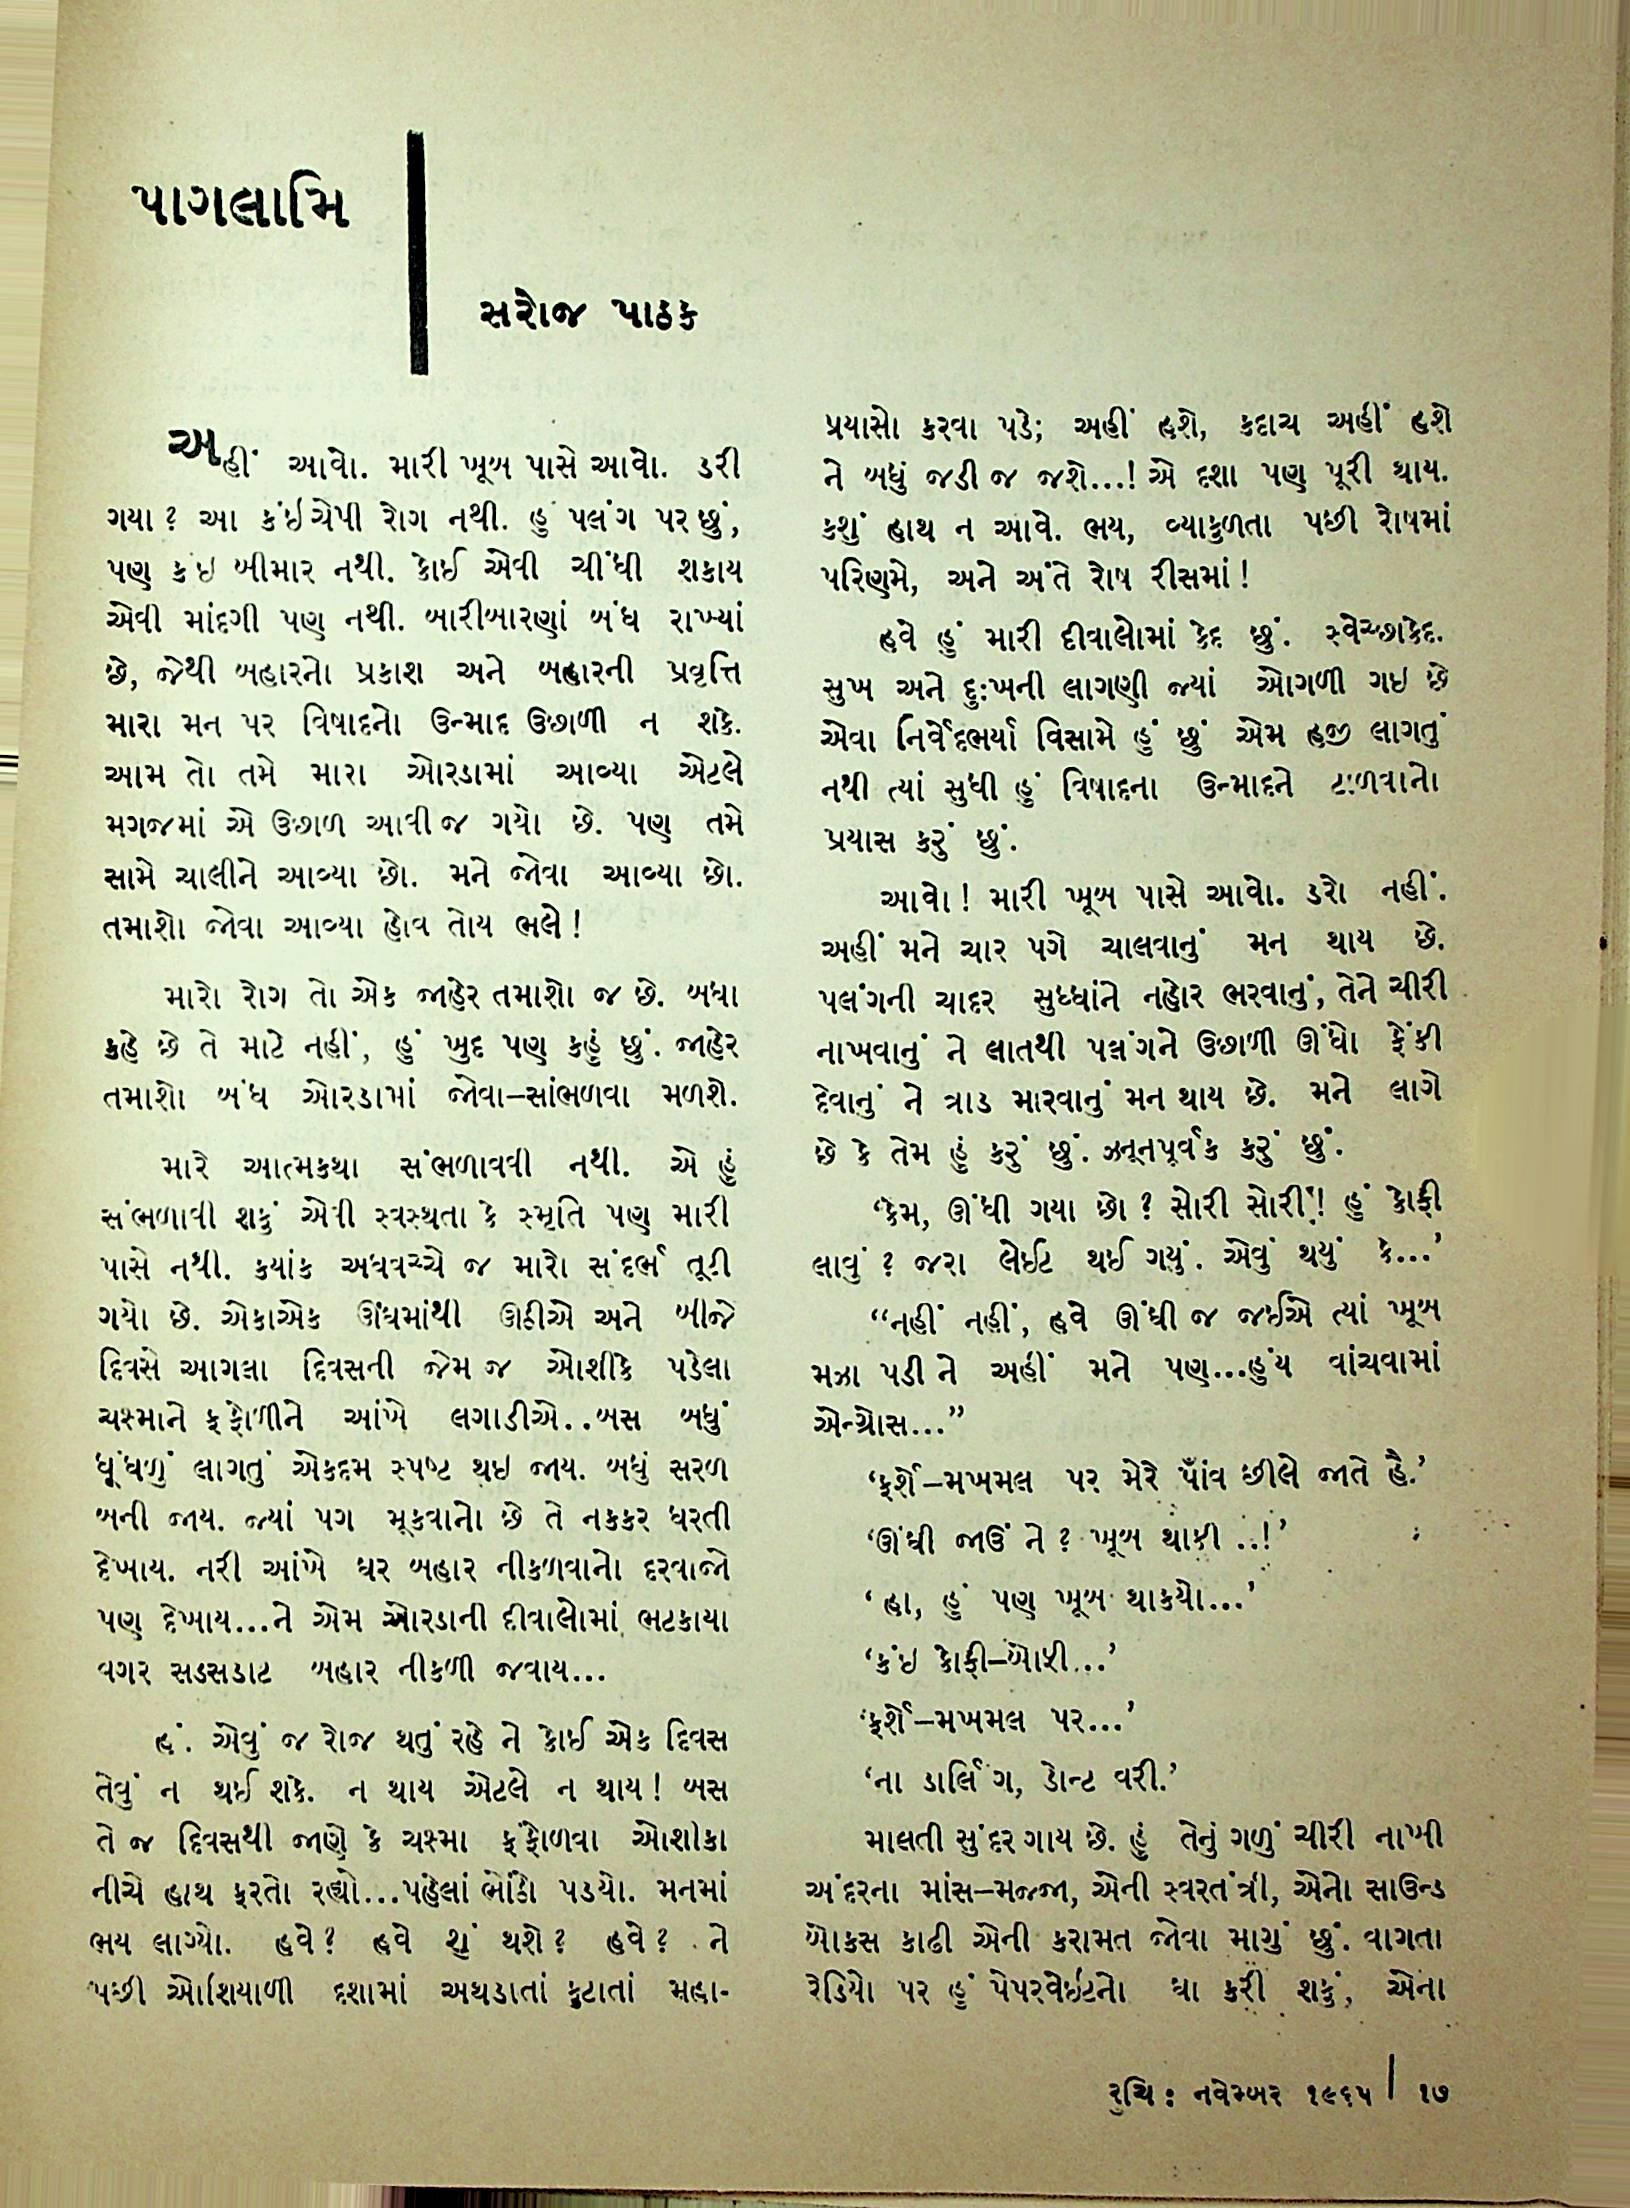 પાગલામિ
સરોજ પાઠક
અહીં આવો. મારી ખૂબ પાસે આવો. ડરી
ગયા? આ કંઇ ચેપી રોગ નથી. હું પલંગ પર છું,
પણ કંઇ બીમાર નથી. કોઈ એવી ચીંધી શકાય
એવી માંદગી પણ નથી. બારીબારણાં બંધ રાખ્યાં
છે, જેથી બહારનો પ્રકાશ અને બહારની પ્રવૃત્તિ
મારા મન પર વિષાદનો ઉન્માદ ઉછાળી ન શકે.
આમ તો તમે મારા ઓરડામાં આવ્યા એટલે
મગજમાં એ ઉછાળ આવી જ ગયો છે. પણ તમે
સામે ચાલીને આવ્યા છો. મને જોવા આવ્યા છો.
તમાશો જોવા આવ્યા હોવ તોય ભલે!
મારો રોગ તો એક જાહેર તમાશો જ છે. બધા
કહે છે તે માટે નહીં, હું ખુદ પણ કહું છું. જાહેર
તમાશો બંધ ઓરડામાં જોવા–સાંભળવા મળશે.
મારે આત્મકથા સંભળાવવી નથી. એ હું
સંભળાવી શકું એવી સ્વસ્થતા કે સ્મૃતિ પણ મારી
પાસે નથી. કયાંક અધવચ્ચે જ મારો સંદર્ભ તૂટી
ગયો છે. એકાએક ઊંઘમાંથી ઊઠીએ અને બીજે
દિવસે આગલા દિવસની જેમ જ ઓશીકે પડેલા
ચશ્માને ફંફોળીને આંખે લગાડીએ..બસ બધું
ધૂંધળું લાગતું એકદમ સ્પષ્ટ થઇ જાય. બધું સરળ
બની જાય. જ્યાં પગ મૂકવાનો છે તે નકકર ધરતી
દેખાય. નરી આંખે ઘર બહાર નીકળવાનો દરવાજો
પણ દેખાય...ને એમ ઓરડાની દીવાલોમાં ભટકાયા
વગર સડસડાટ બહાર નીકળી જવાય...
હં. એવું જ રોજ થતું રહે ને કોઈ એક દિવસ
તેવું ન થઈ શકે. ન થાય એટલે ન થાય! બસ
તે જ દિવસથી જાણે કે ચશ્મા ફંફોળવા ઓશીકા
નીચે હાથ ફરતો રહ્યો...પહેલાં ભોંઠો પડયો. મનમાં
ભય લાગ્યો. હવે? હવે શું થશે? હવે? ને
પછી ઓશિયાળી દશામાં અથડાતાં કુટાતાં મહા-
પ્રયાસો કરવા પડે; અહીં હશે, કદાચ અહીં હશે
ને બધું જડી જ જશે...! એ દશા પણ પૂરી થાય.
કશું હાથ ન આવે. ભય, વ્યાકુળતા પછી રોષમાં
પરિણમે, અને અંતે રોષ રીસમાં!
હવે હું મારી દીવાલોમાં કેદ છું. સ્વેચ્છાકેદ.
સુખ અને દુ:ખની લાગણી જ્યાં ઓગળી ગઇ છે
એવા નિર્વેદભર્યા વિસામે હું છું એમ હજી લાગતું
નથી ત્યાં સુધી હું વિષાદના ઉન્માદને ટાળવાનો
પ્રયાસ કરું છું.
આવો! મારી ખૂબ પાસે આવો. ડરો નહીં.
અહીં મને ચાર પગે ચાલવાનું મન થાય છે.
પલંગની ચાદર સુધ્ધાંને નહોર ભરવાનું, તેને ચીરી
નાખવાનું ને લાતથી પલંગને ઉછાળી ઊંધો ફેંકી
દેવાનું ને ત્રાડ મારવાનું મન થાય છે. મને લાગે
છે કે તેમ હું કરું છું. ઝનૂનપૂર્વક કરું છું.
‘કેમ, ઊંઘી ગયા છો? સોરી સોરી! હું કોફી
લાવું? જરા લેઈટ થઈ ગયું. એવું થયું કે...’
“નહીં નહીં, હવે ઊંઘી જ જઈએ ત્યાં ખૂબ
મઝા પડી ને અહીં મને પણ...હુંય વાંચવામાં
એન્ગ્રોસ...”
‘ફર્શે–મખમલ પર મેરે પાઁવ છીલે જાતે હૈ.’
‘ઊંઘી જાઉં ને? ખૂબ થાકી ..!’
‘હા, હું પણ ખૂબ થાકયો...’
‘કંઇ કોફી–બોફી...’
‘ફર્શે–મખમલ પર...’
‘ના ડાર્લિંગ, ડોન્ટ વરી.’
માલતી સુંદર ગાય છે. હું તેનું ગળું ચીરી નાખી
અંદરના માંસ–મજ્જા, એની સ્વરતંત્રી, એનો સાઉન્ડ
બોકસ કાઢી એની કરામત જોવા માગું છું. વાગતા
રેડિયો પર હું પેપરવેઈટનો ઘા કરી શકું, એના
રુચિ : નવેમ્બર ૧૯૬૫ / ૧૭